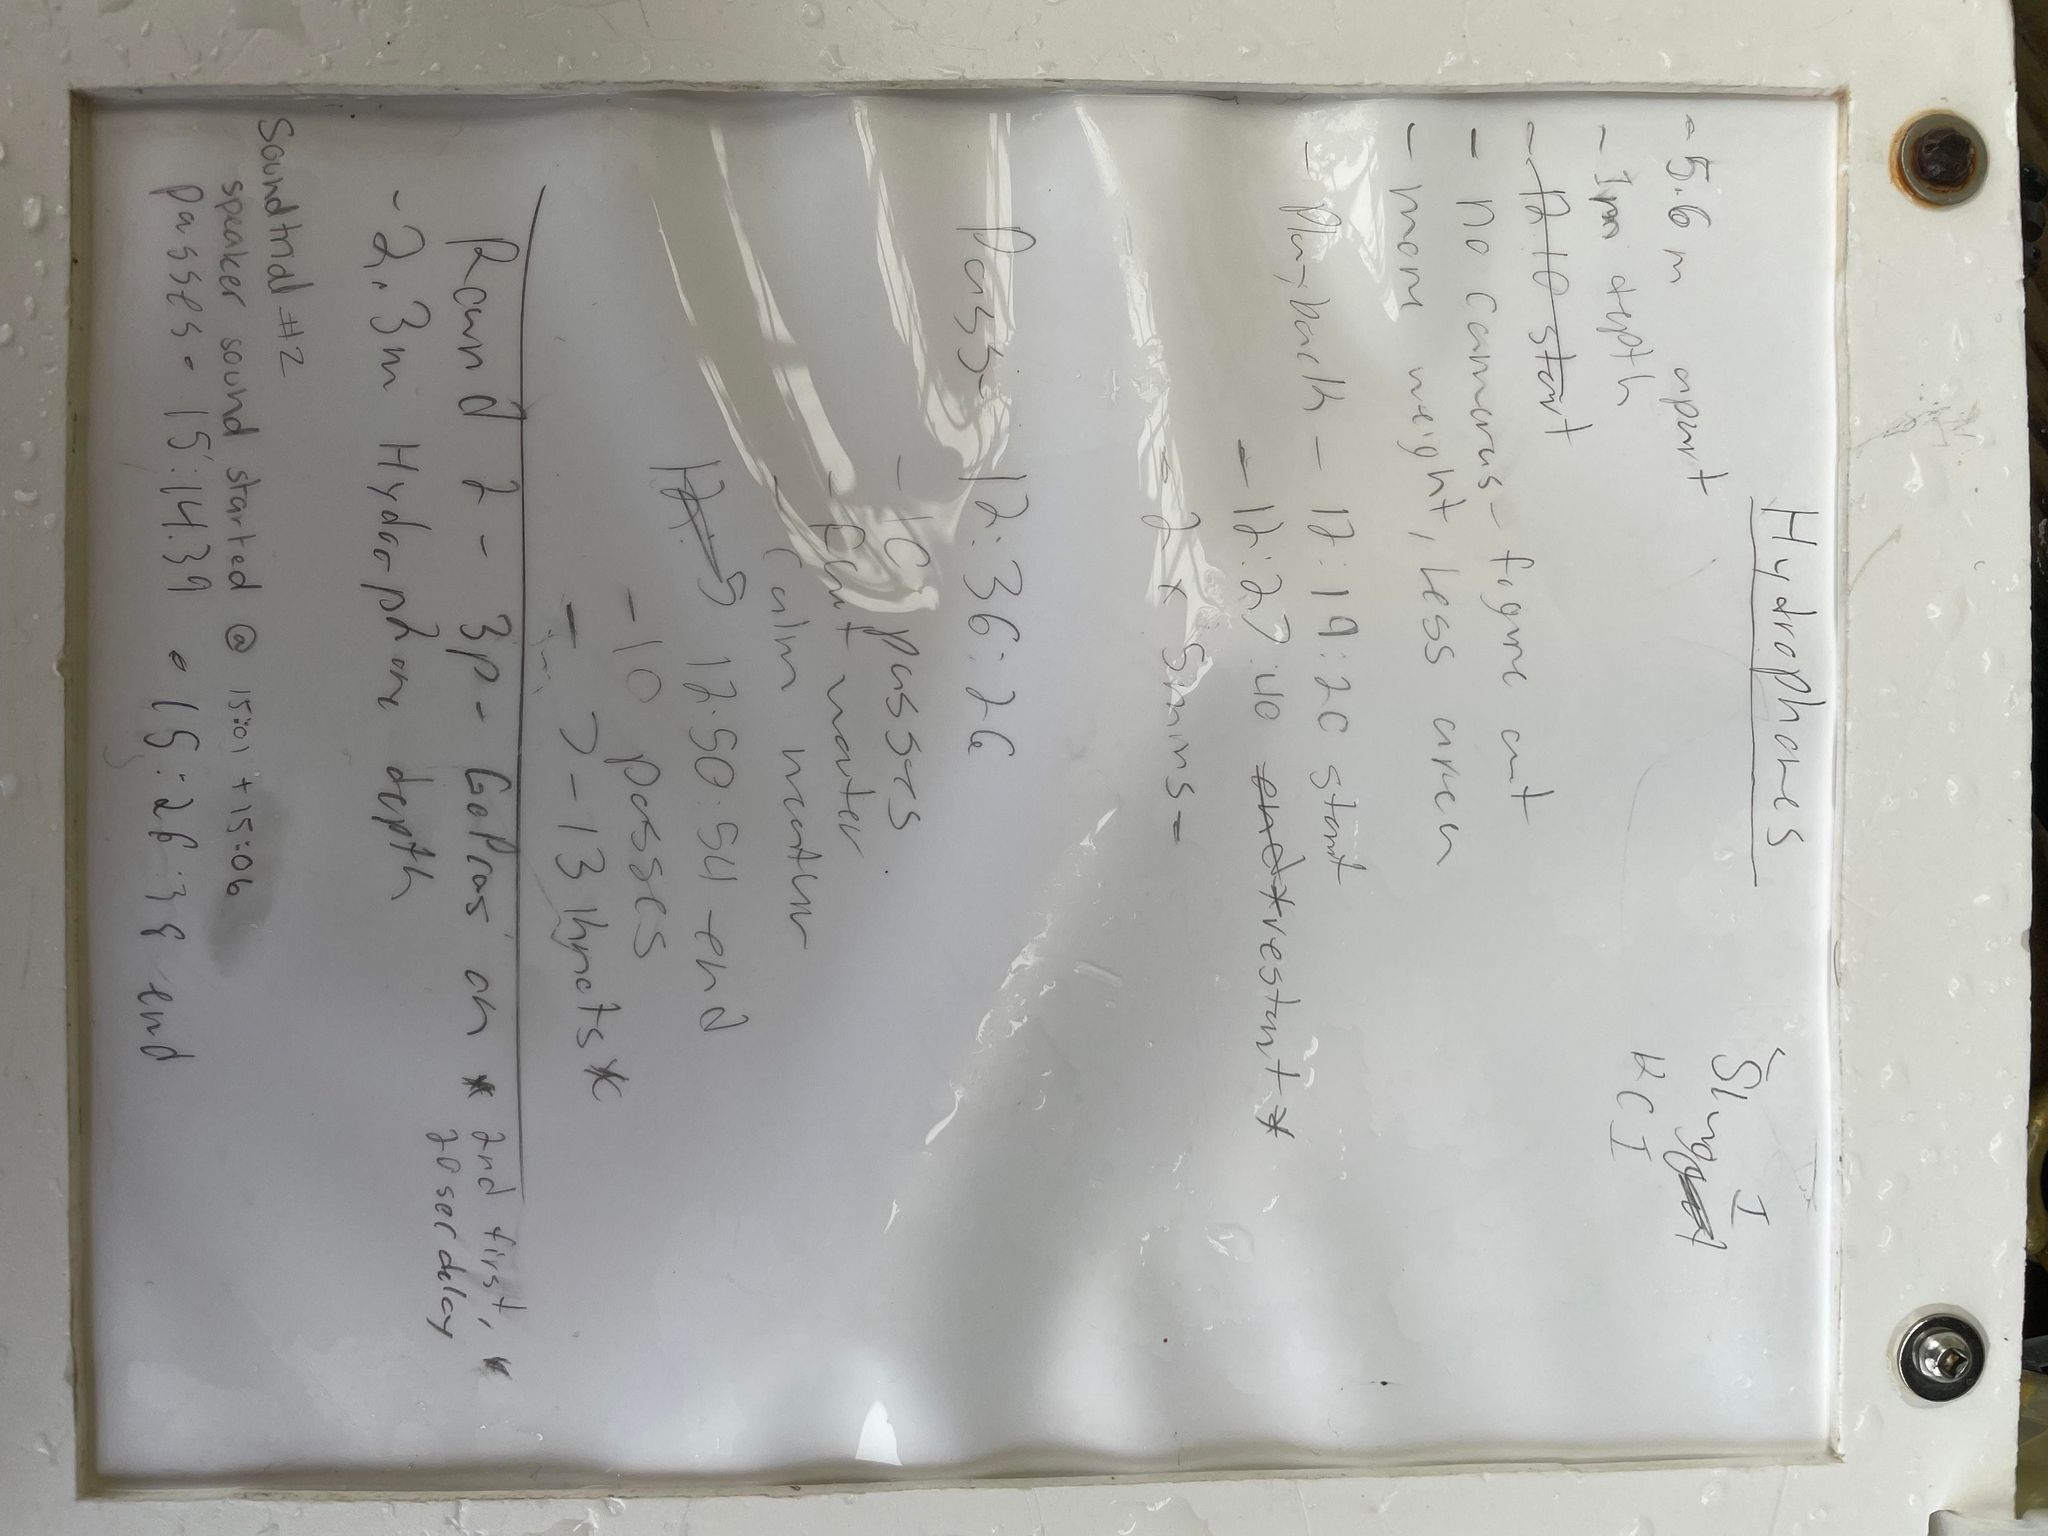 Hydrophones
I
Slug
KCI
- 5.6 m apart
- 1m depth
- 12 10 start
- no cameras - figure out
- more weight, Less area
- Playback - 12:19:20 start
- 12:27:40 end * restart *
- 2 x 5mins -
Pass - 12:36:26
- 10 passes
- flat water
- Calm weather
12:5 12:50:54 end
- 10 passes
- 7-13 knots *
Round 2 - 3p - GoPros on * 2nd first, *
20 sec delay
- 2.3m Hydrophone depth
Sound trial #2
speaker sound started @ 15:01 + 15:06
passes - 15:14.39 - 15:26:38 end